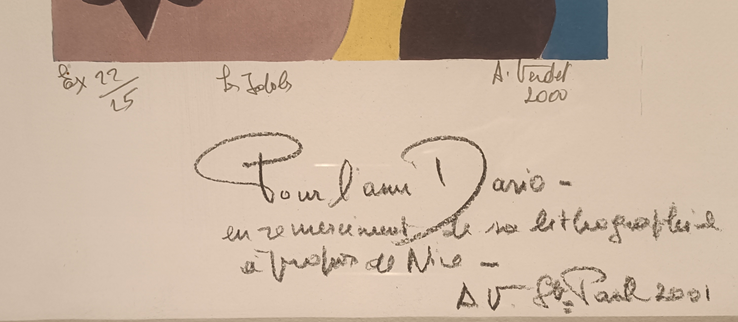 Ex 22/25 Les Idols A. Verdet
2000
Pour l'ami Dario -
en remerciment de sa lithographie
à propos de Nice -
A V. St. Paul 2001